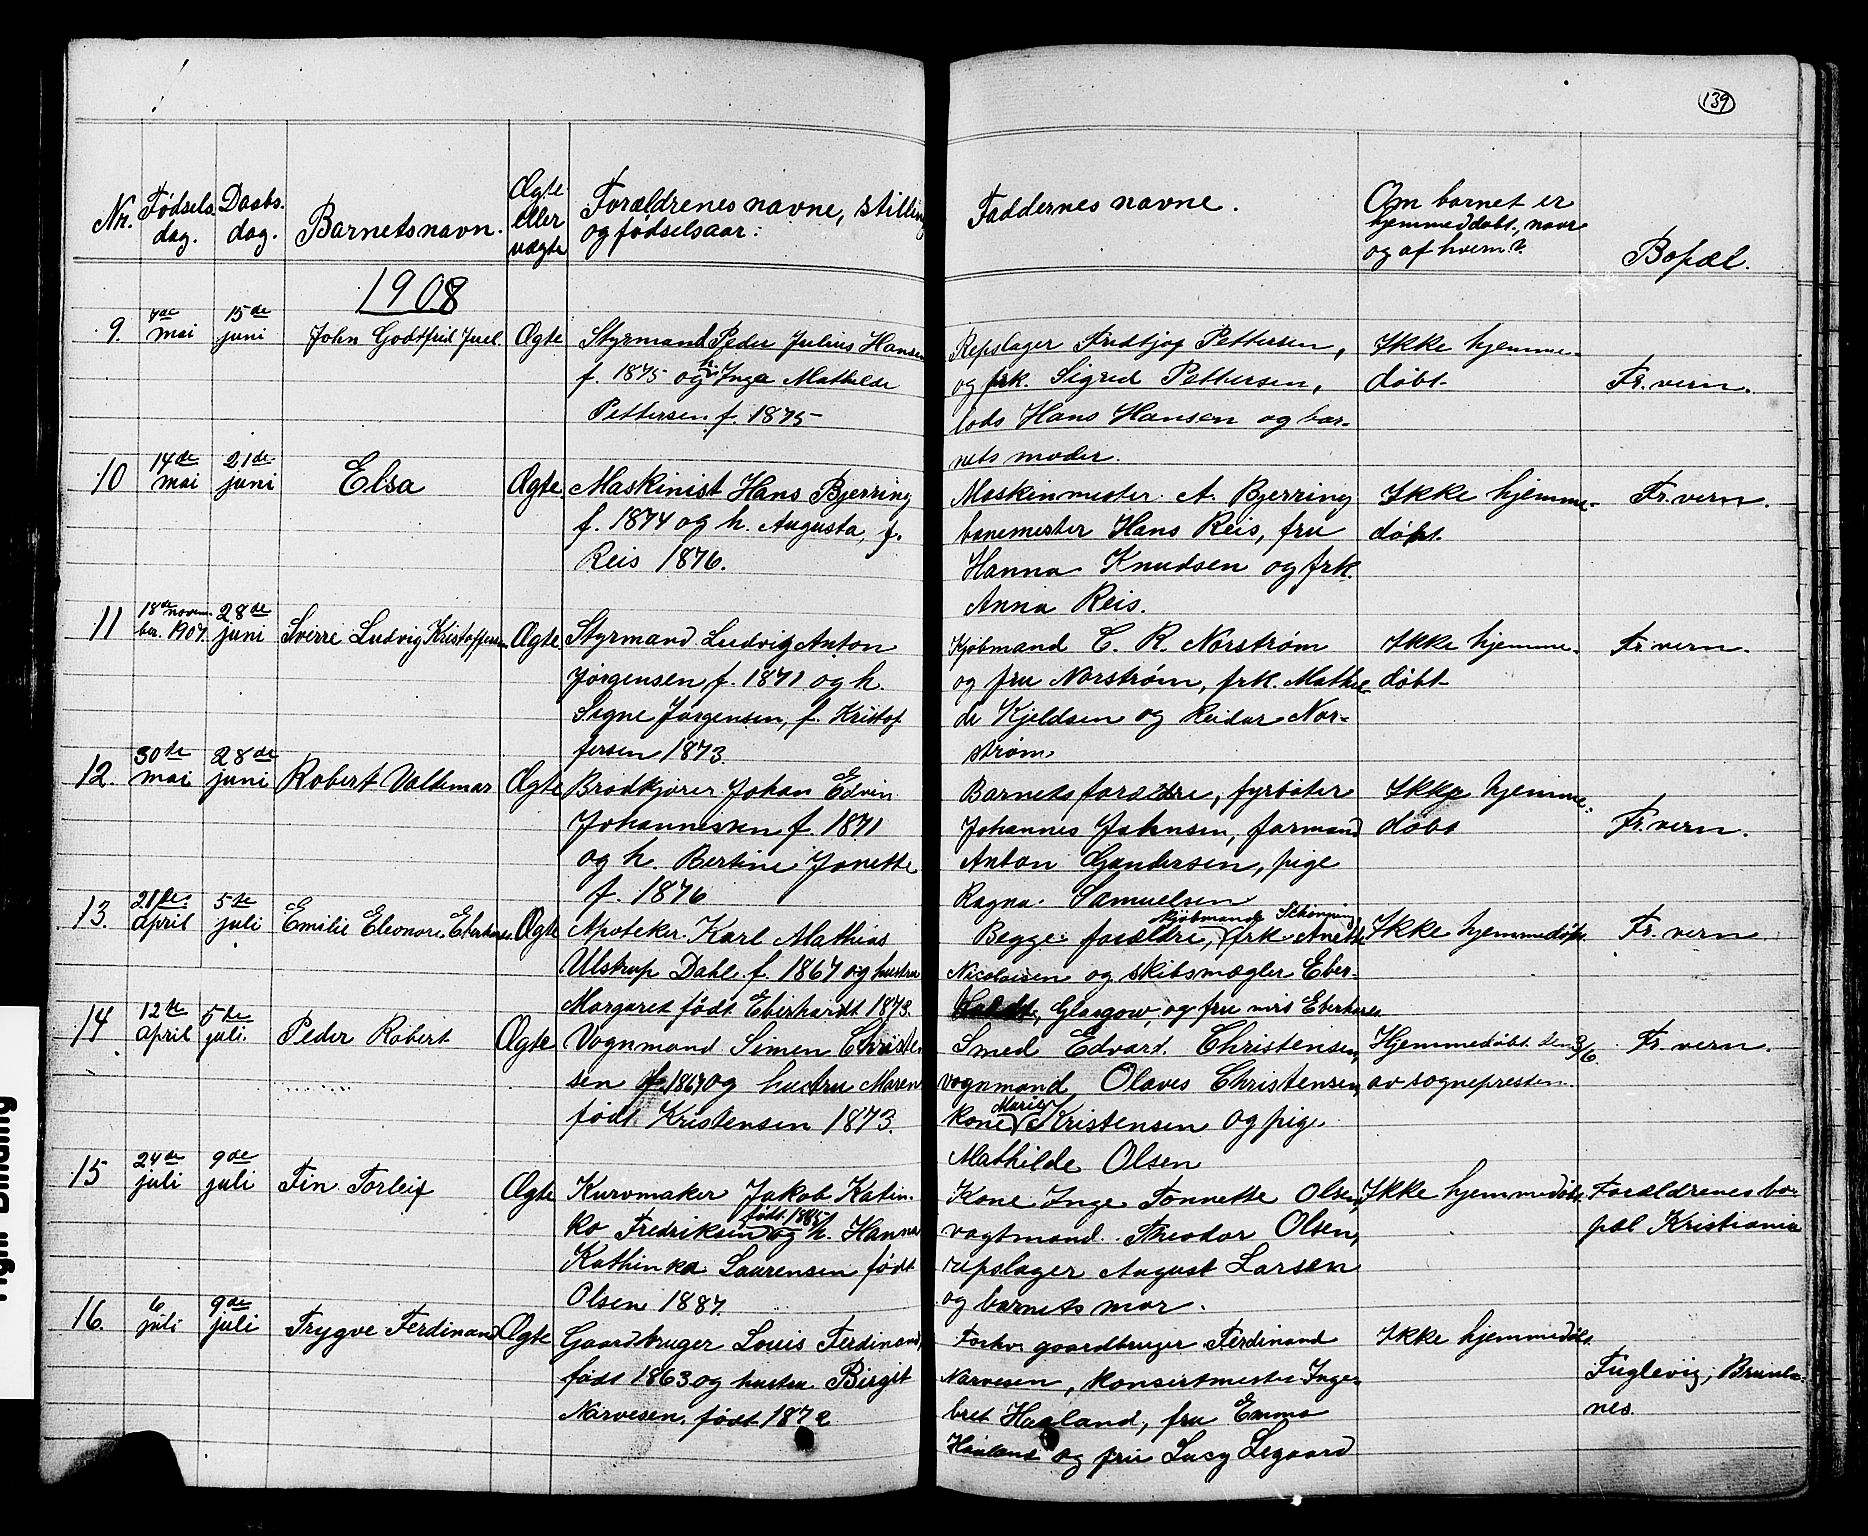 139
Nr. Fødsels dag. Daabs. dag. Barnetsnavn. Ægte eller uægte Forældrenes navne, stilling og fødselsaar: Faddernes navne. Om barnet er hjemmedøbt, naar og af hvem? Bopæl.
1908
9. 4de mai 15de juni John Godtfred Juel Ægte Styrmand Peder Julius Hansen
f. 1875 og h. Inga Mathilde
Pettersen f. 1875
Repslager Fredtjof Pettersen,
og frk. Sigred Pettersen,
lods Hans Hansen og bar-
nets moder.
Ikke hjemme-
døbt
Fr.vern.
10 14de mai 21de juni Elsa Ægte Maskinist Hans Bjerring
f. 1874 og h. Augusta, f.
Reis 1876.
Maskinmester A. Bjerring
banemester Hans Reis, fru
Hanna Knudsen og frk.
Anna Reis.
Ikke hjemme-
døbt
Fr.vern.
11 18de novem-
ber 1907. 28de juni Sverre Ludvig Kristoffersen Ægte Styrmand Ludvig Anton
Jørgensen f. 1871 og h.
Signe Jørgensen, f. Kristof
fersen 1873.
Kjøbmand C. R. Norstrøm
og fru Norstrøm, frk. Mathil
de Kjeldsen og Reidar Nor-
strøm
Ikke hjemme-
døbt
Fr.vern.
12. 30te mai 28de juni Robert Valdemar Ægte Brødkjører Johan Edvin
Johannesen f. 1871
og h. Bertine Jonette
f. 1876
Barnets forældre, fyrbøter
Johannes Johnsen, formand
Anton Gundersen, pige
Ragna Samuelsen
Ikke hjemme-
døbt
Fr.vern.
13. april 5te juli Emilie Eleonore Eberhardt Ægte Apoteker Karl Mathias
Ulstrup Dahl f. 1867 og hustru
Margaret født Eberhardt 1873.
kjøbmand Schønning
Begge forældre, frk. Anette
Nicolaisen og skibsmægler Eber-
Glasgow, og fru mrs Eberhardt
Ikke hjemmedøbt
Fr. vern
14 12te april 5te juli. Peder Robert Ægte Vognmand Simen Christen
sen f. 1867 og hustru Maren
født Kristensen 1873.
Smed Edvard Christensen,
vognmand Olaves Christensen,
kone Marie Kristensen og pige
Mathilde Olsen
Hjemmedøbt den 3/6
av sognepresten.
Fr. vern.
15 24de juli 9de juli Fin Torleif Ægte Kurvmaker Jakob Katin-
ka Fredriksen født 1885 og h. Hanna
Kathinka Laurensen født
Olsen 1887.
Kone Inge Tonnette Olsen,
vagtmand Theodor Olsen,
repslager August Larsen
og barnets mor.
Ikke hjemmedøbt
Forældrenes bo-
pæl Kristiania
16. 6 juli 9de juli Trygve Ferdinand Ægte Gaardbruger Louis Ferdinand,
født 1863 og hustru Birgit
Narvesen, født 1872
Forhv. gaardbruger Ferdinand
Narvesen, konsertmester Inge-
bret Haaland, fru Emma
Haaland og fru Lucy Legaard
Ikke hjemmedøbt
Fuglevig, Brunla-
nes.